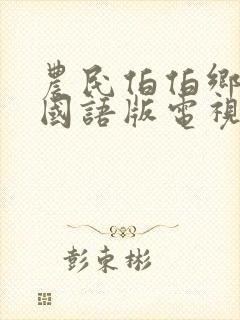 農民伯伯鄉
國語版電視
彭束彬